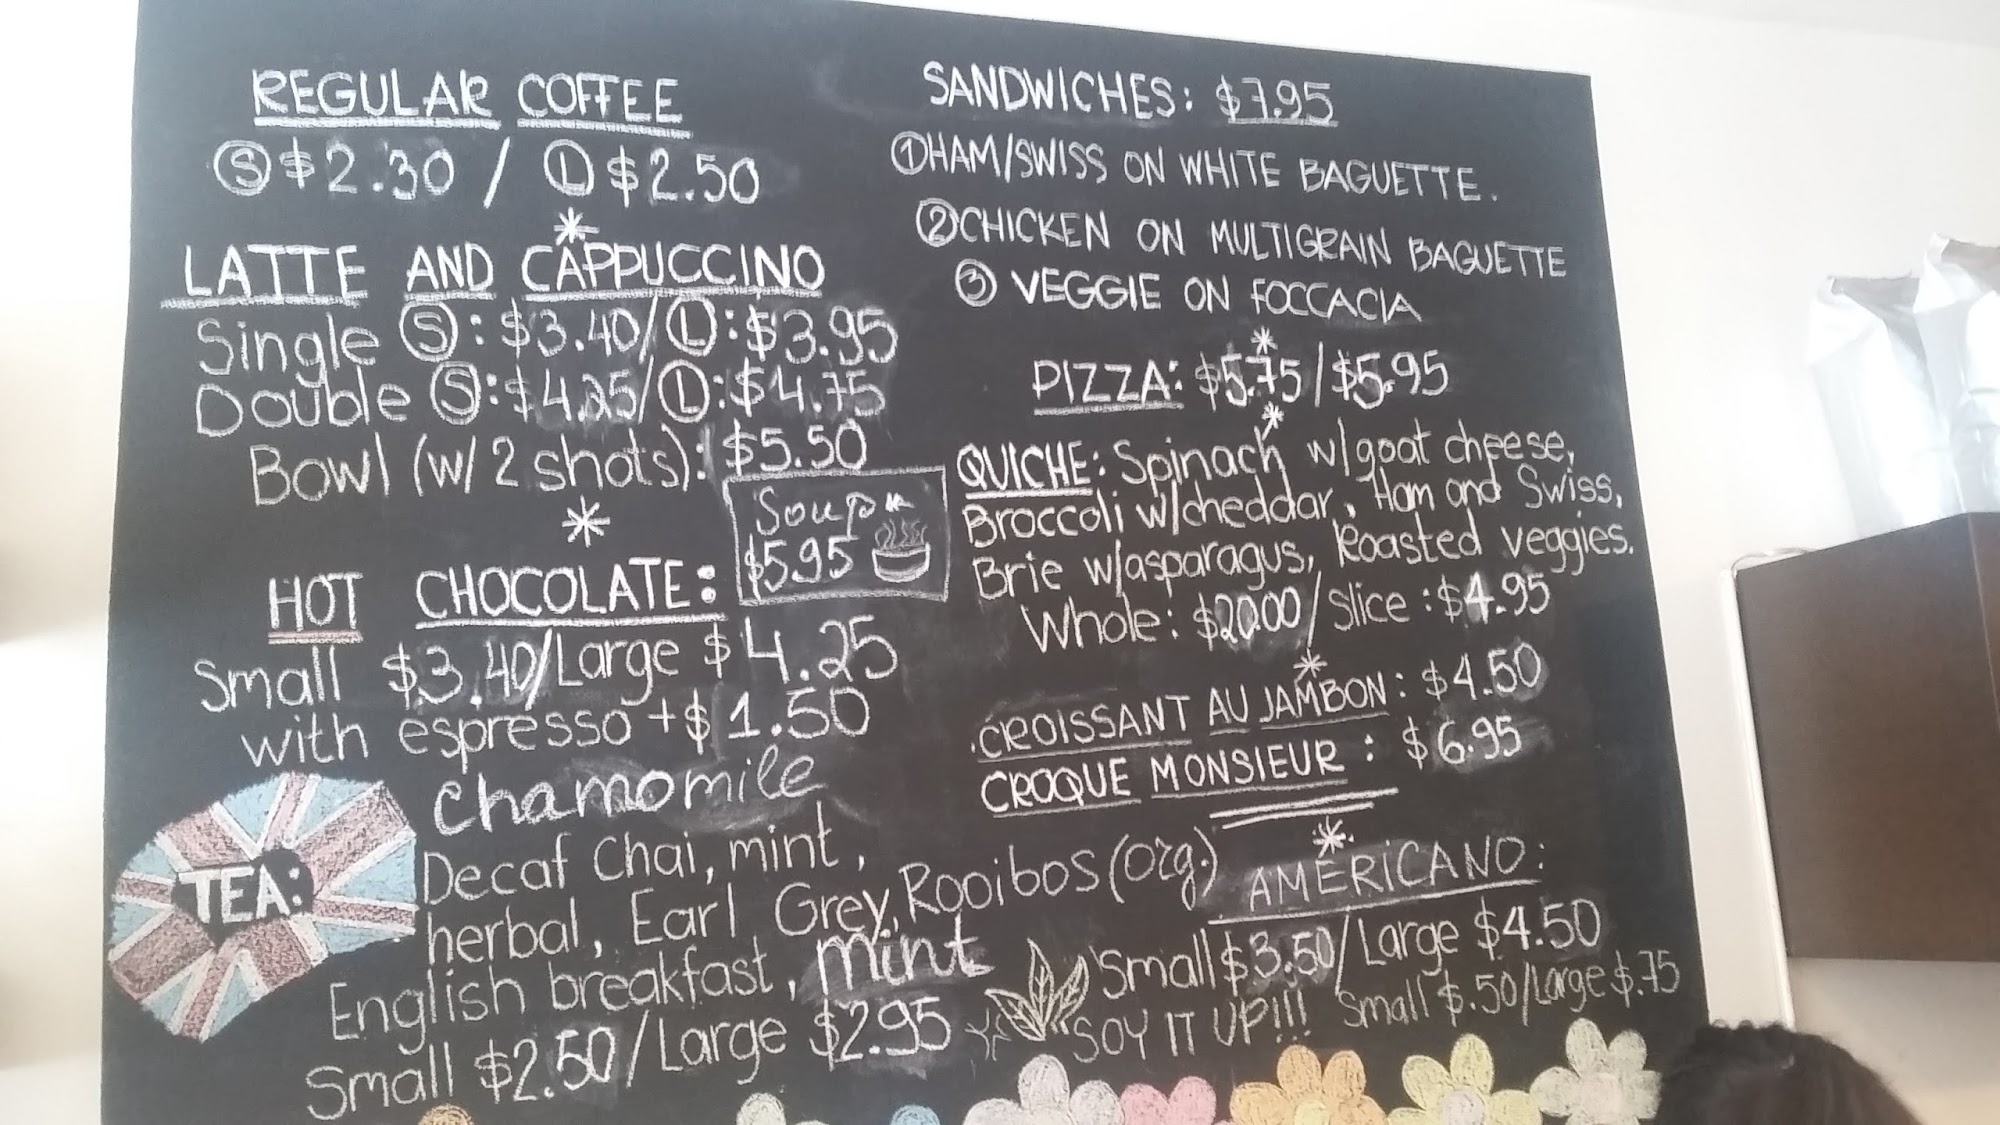 REGULAR COFFEE
Ⓢ $2.30 / Ⓛ $2.50
*
LATTE AND CAPPUCCINO
Single Ⓢ: $3.40/Ⓛ: $3.95
Double Ⓢ: $4.25/Ⓛ: $4.75
Bowl (w/ 2 shots): $5.50
*
Soup
$5.95
HOT CHOCOLATE:
Small $3.40/Large $4.25
with espresso +$1.50
TEA:
chamomile
Decaf Chai, mint,
herbal, Earl Grey, Rooibos (org.)
English breakfast, mint
Small $2.50/Large $2.95
SANDWICHES: $7.95
① HAM/SWISS ON WHITE BAGUETTE.
② CHICKEN ON MULTIGRAIN BAGUETTE
③ VEGGIE ON FOCCACIA
*
PIZZA: $5.75/$5.95
*
QUICHE: Spinach w/goat cheese,
Broccoli w/cheddar, Ham and Swiss,
Brie w/asparagus, Roasted veggies.
Whole: $20.00/Slice: $4.95
*
CROISSANT AU JAMBON: $4.50
CROQUE MONSIEUR: $6.95
*
AMERICANO:
Small $3.50/Large $4.50
SOY IT UP!!! Small $.50/Large $.75